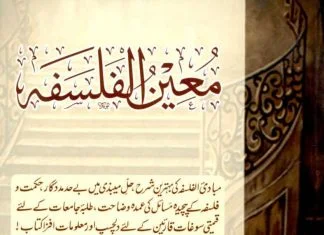 معین الفلسفہ
مبادئ الفلسفہ کی بہترین شرح، حلِ میبذی میں بے حد مددگار، حکمت و
فلسفہ کے پیچیدہ مسائل کی عمدہ وضاحت، طلبۂ جامعات کے لئے
قیمتی سوغات، قارئین کے لئے دلچسپ اور معلومات افزا کتاب!